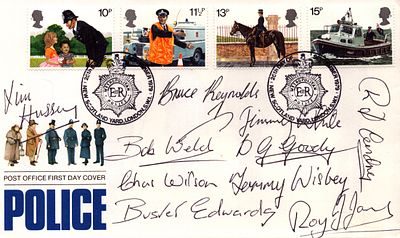 10p 11½p 13p 15p
NEW SCOTLAND YARD, LONDON S.W.1
NEW SCOTLAND YARD, LONDON S.W.1
E II R
E II R
Jim Hussey
Bruce Reynolds
Jimmy White
Bob Welch
D G Goody
Chas Wilson
Tommy Wisbey
Buster Edwards
Roy J James
POST OFFICE FIRST DAY COVER
POLICE